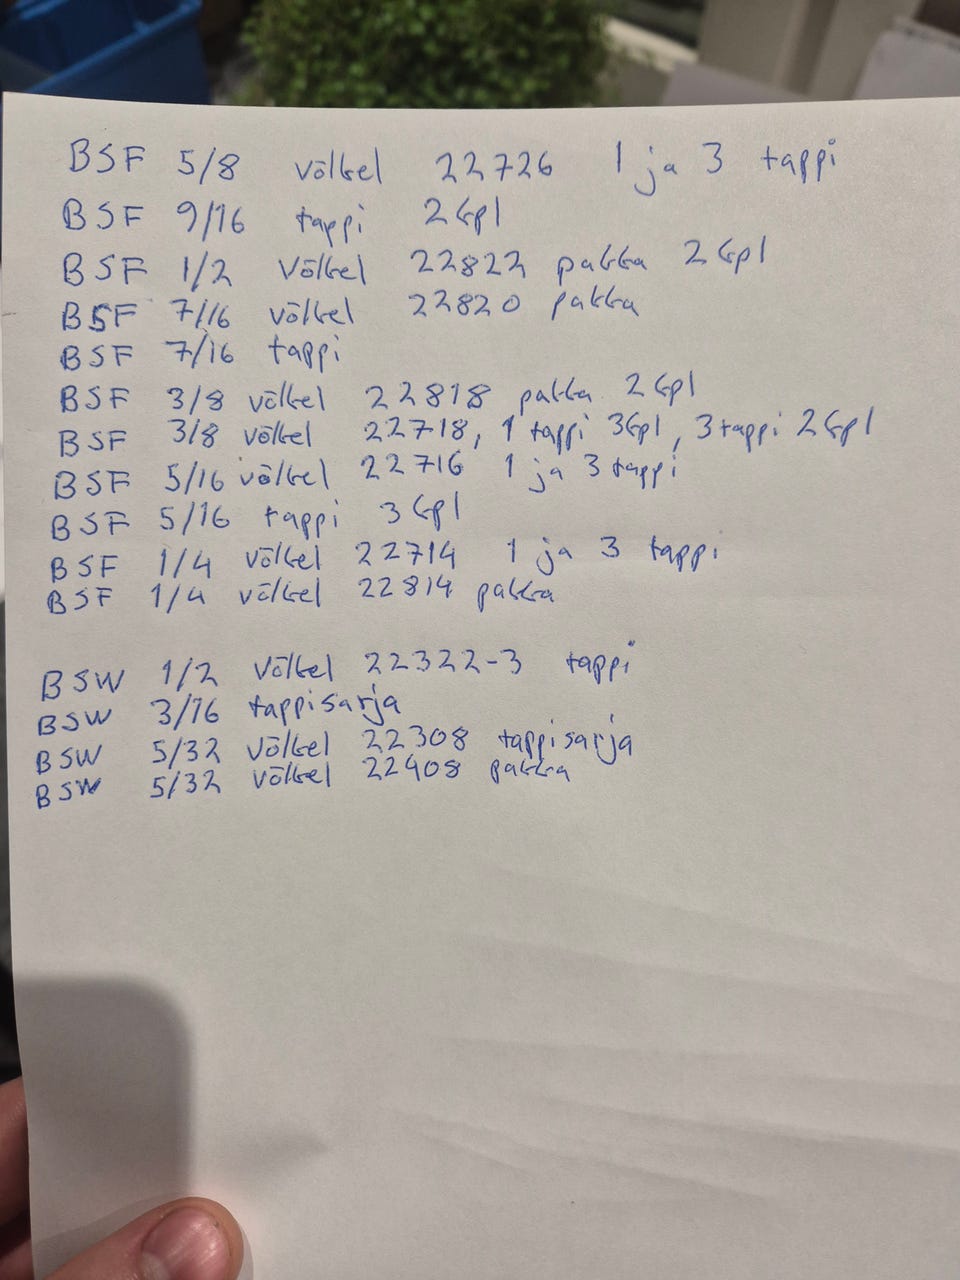 BSF 5/8 võlkel 22726 1 ja 3 tappi
BSF 9/16 tappi 2kpl
BSF 1/2 võlkel 22822 pakka 2kpl
BSF 7/16 võlkel 22820 pakka
BSF 7/16 tappi
BSF 3/8 võlkel 22818 pakka 2kpl
BSF 3/8 võlkel 22718, 1 tappi 3kpl, 3 tappi 2kpl
BSF 5/16 võlkel 22716 1 ja 3 tappi
BSF 5/16 tappi 3kpl
BSF 1/4 võlkel 22714 1 ja 3 tappi
BSF 1/4 võlkel 22814 pakka
BSW 1/2 võlkel 22322-3 tappi
BSW 3/16 tappisarja
BSW 5/32 võlkel 22308 tappisarja
BSW 5/32 võlkel 22408 pakka